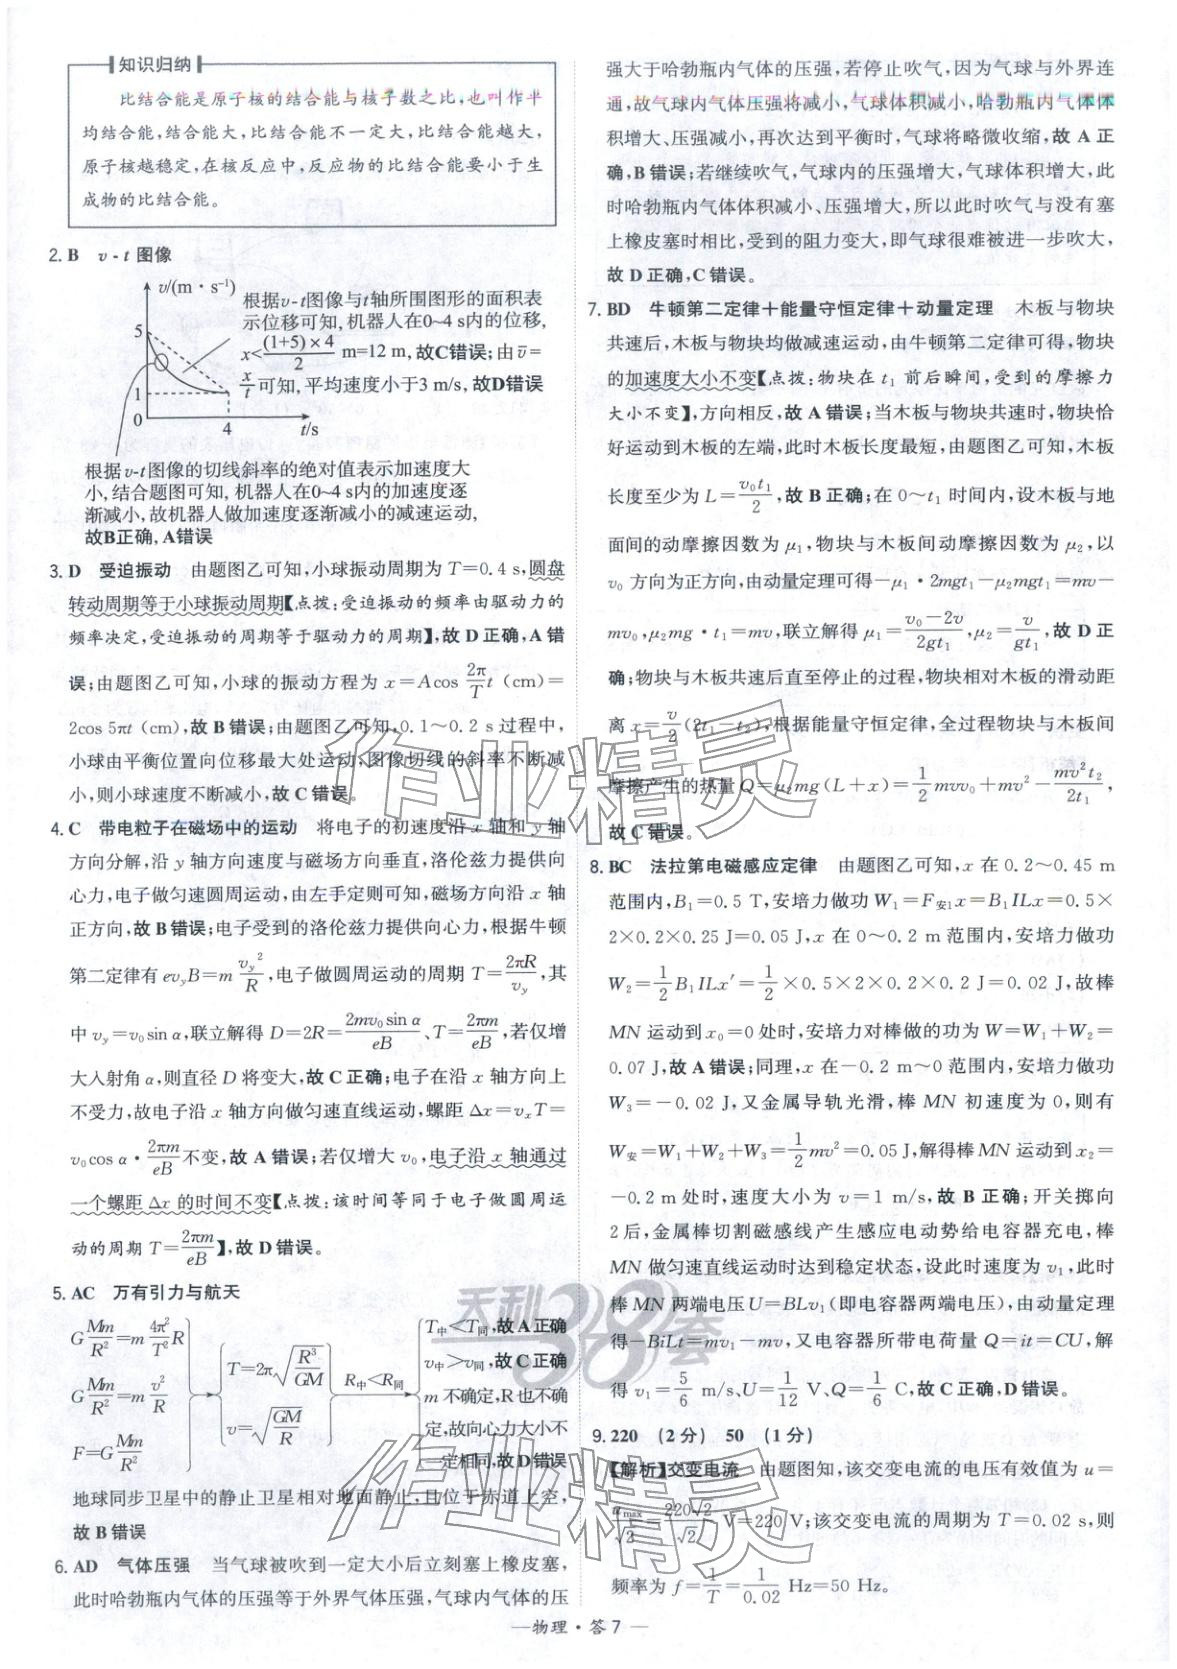 知识归纳
比结合能是原子核的结合能与核子数之比,也叫作平
均结合能,结合能大,比结合能不一定大,比结合能越大,
原子核越稳定,在核反应中,反应物的比结合能要小于生
成物的比结合能。
2. B v-t 图像
v/(m·s⁻¹)
5
1
0
4
t/s
根据v-t图像与t轴所围图形的面积表
示位移可知,机器人在0~4 s内的位移,
x<(1+5)×4/2 m=12 m,故C错误;由v̄=
x/t可知,平均速度小于3 m/s,故D错误
根据v-t图像的切线斜率的绝对值表示加速度大
小,结合题图可知,机器人在0~4 s内的加速度逐
渐减小,故机器人做加速度逐渐减小的减速运动,
故B正确,A错误
3. D 受迫振动 由题图乙可知,小球振动周期为 T=0.4 s,圆盘
转动周期等于小球振动周期【点拨:受迫振动的频率由驱动力的
频率决定,受迫振动的周期等于驱动力的周期】,故 D 正确,A 错
误;由题图乙可知,小球的振动方程为 x=Acos 2π/T t (cm)=
2cos 5πt (cm),故 B 错误;由题图乙可知,0.1~0.2 s 过程中,
小球由平衡位置向位移最大处运动,图像切线的斜率不断减
小,则小球速度不断减小,故 C 错误。
4. C 带电粒子在磁场中的运动 将电子的初速度沿 x 轴和 y 轴
方向分解,沿 y 轴方向速度与磁场方向垂直,洛伦兹力提供向
心力,电子做匀速圆周运动,由左手定则可知,磁场方向沿 x 轴
正方向,故 B 错误;电子受到的洛伦兹力提供向心力,根据牛顿
第二定律有 evᵧB=m vᵧ²/R,电子做圆周运动的周期 T=2πR/vᵧ,其
中 vᵧ=v₀sin α,联立解得 D=2R=2mv₀sin α/eB、T=2πm/eB,若仅增
大入射角 α,则直径 D 将变大,故 C 正确;电子在沿 x 轴方向上
不受力,故电子沿 x 轴方向做匀速直线运动,螺距 Δx=vₓT=
v₀cos α·2πm/eB不变,故 A 错误;若仅增大 v₀,电子沿 x 轴通过
一个螺距 Δx 的时间不变【点拨:该时间等同于电子做圆周运
动的周期 T=2πm/eB】,故 D 错误。
5. AC 万有引力与航天
G Mm/R²=m 4π²/T² R
G Mm/R²=m v²/R
F=G Mm/R²
T=2π√(R³/GM)
v=√(GM/R)
R中<R同
T中<T同,故A正确
v中>v同,故C正确
m 不确定,R也不确
定,故向心力大小不
一定相同,故D错误
地球同步卫星中的静止卫星相对地面静止,且位于赤道上空,
故 B 错误
6. AD 气体压强 当气球被吹到一定大小后立刻塞上橡皮塞,
此时哈勃瓶内气体的压强等于外界气体压强,气球内气体的压
强大于哈勃瓶内气体的压强,若停止吹气,因为气球与外界连
通,故气球内气体压强将减小,气球体积减小,哈勃瓶内气体体
积增大、压强减小,再次达到平衡时,气球将略微收缩,故 A 正
确,B 错误;若继续吹气,气球内的压强增大,气球体积增大,此
时哈勃瓶内气体体积减小、压强增大,所以此时吹气与没有塞
上橡皮塞时相比,受到的阻力变大,即气球很难被进一步吹大,
故 D 正确,C 错误。
7. BD 牛顿第二定律+能量守恒定律+动量定理 木板与物块
共速后,木板与物块均做减速运动,由牛顿第二定律可得,物块
的加速度大小不变【点拨:物块在 t₁ 前后瞬间,受到的摩擦力
大小不变】,方向相反,故 A 错误;当木板与物块共速时,物块恰
好运动到木板的左端,此时木板长度最短,由题图乙可知,木板
长度至少为 L=v₀t₁/2,故 B 正确;在 0~t₁ 时间内,设木板与地
面间的动摩擦因数为 μ₁,物块与木板间动摩擦因数为 μ₂,以
v₀ 方向为正方向,由动量定理可得−μ₁·2mgt₁−μ₂mgt₁=mv−
mv₀,μ₂mg·t₁=mv,联立解得 μ₁=(v₀−2v)/2gt₁,μ₂=v/gt₁,故 D 正
确;物块与木板共速后直至停止的过程,物块相对木板的滑动距
离 x=v/2(2t₁−t₂),根据能量守恒定律,全过程物块与木板间
摩擦产生的热量 Q=μ₂mg(L+x)=1/2 mvv₀+mv²−mv²t₂/2t₁,
故 C 错误。
8. BC 法拉第电磁感应定律 由题图乙可知,x 在 0.2~0.45 m
范围内,B₁=0.5 T,安培力做功 W₁=F安₁x=B₁ILx=0.5×
2×0.2×0.25 J=0.05 J,x 在 0~0.2 m 范围内,安培力做功
W₂=1/2 B₁ILx′=1/2×0.5×2×0.2×0.2 J=0.02 J,故棒
MN 运动到 x₀=0 处时,安培力对棒做的功为 W=W₁+W₂=
0.07 J,故 A 错误;同理,x 在−0.2 m~0 范围内,安培力做功
W₃=−0.02 J,又金属导轨光滑,棒 MN 初速度为 0,则有
W安=W₁+W₂+W₃=1/2 mv²=0.05 J,解得棒 MN 运动到 x₂=
−0.2 m 处时,速度大小为 v=1 m/s,故 B 正确;开关掷向
2后,金属棒切割磁感线产生感应电动势给电容器充电,棒
MN 做匀速直线运动时达到稳定状态,设此时速度为 v₁,此时
棒 MN 两端电压 U=BLv₁(即电容器两端电压),由动量定理
得−BiLt=mv₁−mv,又电容器所带电荷量 Q=it=CU,解
得 v₁=5/6 m/s,U=1/12 V,Q=1/6 C,故 C 正确,D 错误。
9. 220 (2 分) 50 (1 分)
【解析】交变电流 由题图知,该交变电流的电压有效值为 u=
uₘₐₓ/√2=220√2/√2 V=220 V;该交变电流的周期为 T=0.02 s,则
频率为 f=1/T=1/0.02 Hz=50 Hz。
—物理·答 7—
作业精灵
天利38套
作业精灵